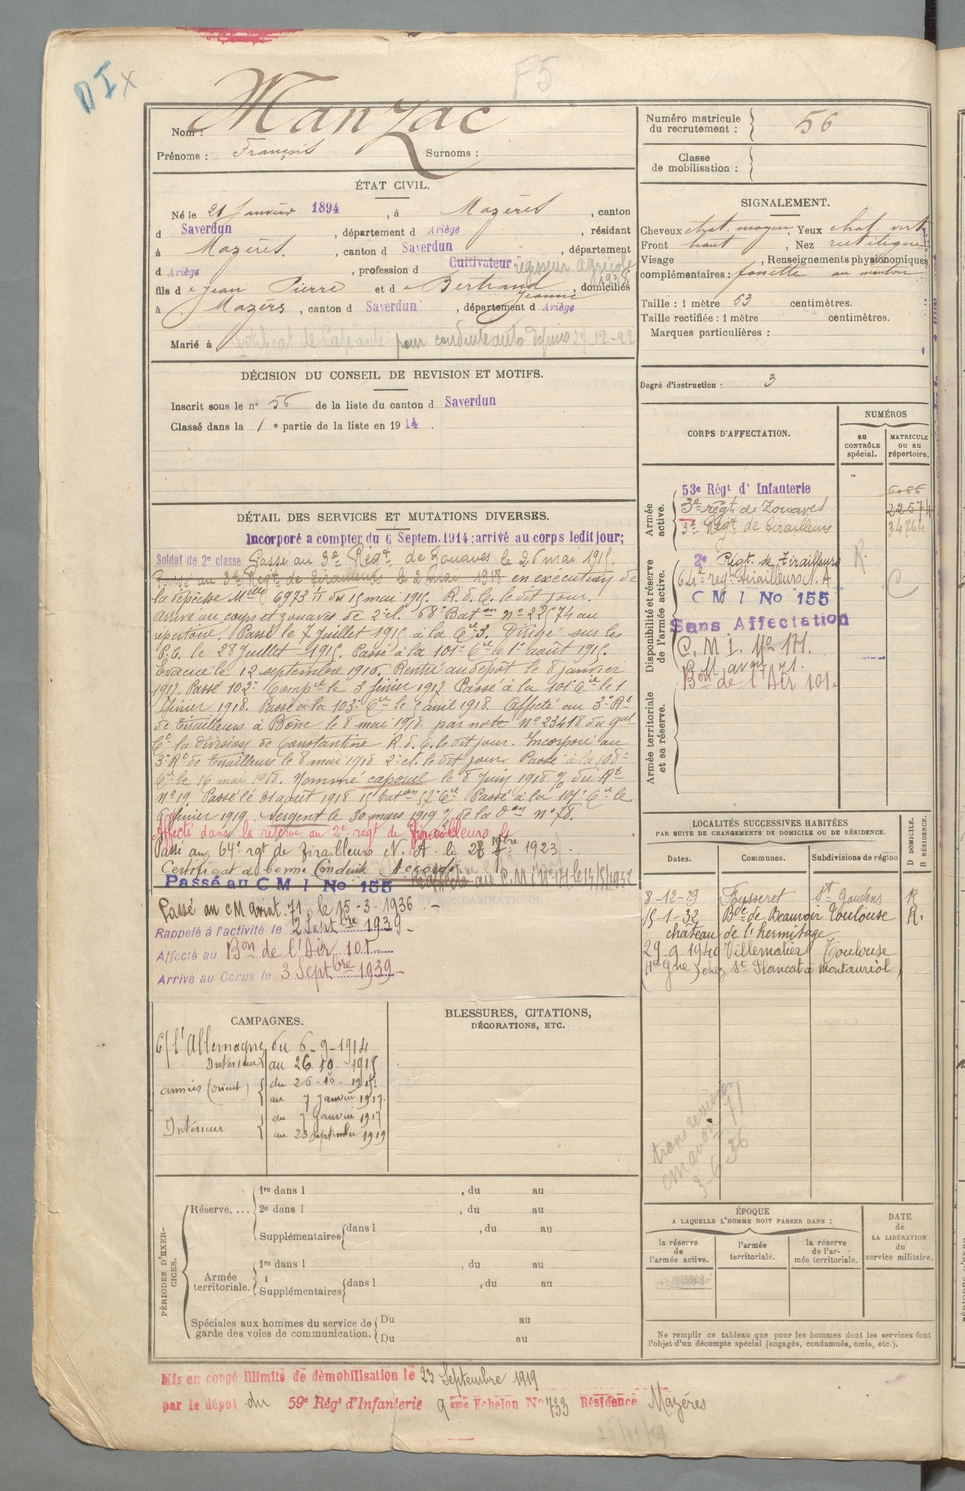 DIX
F5
Nom : Manzac
Prénoms : François Surnoms :
Numéro matricule du recrutement : 56
Classe de mobilisation :
ÉTAT CIVIL.
Né le 21 Janvier 1894, à Mazères, canton
d Saverdun, département d Ariège, résidant
à Mazères, canton d Saverdun, département
d Ariège, profession d Cultivateur régisseur agricole 1938
fils de Jean Pierre et de Bertrand Jeanne, domiciliés
à Mazères, canton d Saverdun, département d Ariège
Marié à
Certificat de Capacité pour conduite auto depuis 27-12-22
SIGNALEMENT.
Cheveux chat. moyen. Yeux chat. vert
Front haut, Nez rectiligne
Visage , Renseignements physionomiques
complémentaires : fossette au menton
Taille : 1 mètre 63 centimètres.
Taille rectifiée : 1 mètre centimètres.
Marques particulières :
Degré d'instruction : 3
DÉCISION DU CONSEIL DE REVISION ET MOTIFS.
Inscrit sous le n° 56 de la liste du canton d Saverdun
Classé dans la 1e partie de la liste en 1914.
CORPS D'AFFECTATION.
NUMÉROS
AU CONTRÔLE spécial.
MATRICULE OU AU répertoire.
Armée active.
53e Régt d'Infanterie
3e régt de Zouaves 22574
3e Régt de tirailleurs 34764
Disponibilité et réserve de l'armée active.
2e Régt de Tirailleurs R.
64e regt tirailleurs N.A C
C M I No 155
Sans Affectation
C. M I. No 171.
Bon de l'Air 101.
Armée territoriale et sa réserve.
DÉTAIL DES SERVICES ET MUTATIONS DIVERSES.
Incorporé a compter du 6 Septem. 1914; arrivé au corps ledit jour;
Soldat de 2e classe Passé au 3e Régt de Zouaves le 26 mai 1915.
Passé au 3e Regt de tirailleurs le 2 mai 1918 en exécution de
la dépêche Mlle 6973 1/11 du 15 mai 1915. R. d. C. le dit jour.
arrivé au corps et zouaves de 2e cl. 68e Baton no 22574 au
répertoire. Passé le 7 Juillet 1915 à la Cie 3. Dirigé sur les
le 28 Juillet 1915. Passé à la 101e Cie le 1er août 1915.
Evacué le 12 septembre 1916. Rentré au dépôt le 8 janvier
1917. Passé 102e Compie le 3 février 1917. Passé à la 101e Cie le 1
février 1918. Passé à la 103e Cie le 1 avril 1918. Affecté au 3e Rt
de tirailleurs à Bône le 8 mai 1918 par note No 23418 du Gal
Ct la Division de Constantine R. d. C. le dit jour. Incorporé au
3e Rt de tirailleurs le 8 mai 1918 2e cl. le dit jour. Passé à la 108e
Cie le 16 mai 1918. Nommé caporal le 8 Juin 1918 O. du Rt
no 19. Passé le 31 août 1918 15 baton 52e Cie Passé à la 107e Cie le
6 février 1919. Sergent le 30 mars 1919 O. de la Don no 78.
Affecté dans la réserve au 2e regt de Tirailleurs le
Passé au 64e rgt de Tirailleurs N. A. le 28 7bre 1923.
Certificat de bonne Conduite Accordé
Passé au C M I No 155
réaffecté au C. M I No 171 le
Passé au CM Aviat. 71, le 15-3-1936.
Rappelé à l'activité le 2 Septbre 1939
Affecté au Bon de l'Air 101
Arrivé au Corps le 3 Septbre 1939
LOCALITÉS SUCCESSIVES HABITÉES
PAR SUITE DE CHANGEMENTS DE DOMICILE OU DE RÉSIDENCE.
D DOMICILE. R RÉSIDENCE.
Dates. Communes. Subdivisions de région
8-12-29 Fousseret St Gaudens R
15-1-32 Bde de Beauvoir Toulouse R.
château de l'hermitage
29.9 1940 Villematier Toulouse
(Hte Gne) chez St Plancat à Montauriol
trans revision
cm avon 71
3-6 36
CAMPAGNES.
C/ l'Allemagne du 6-9-1914
Intérieur au 26-10-1915
armées (orient) du 26-10-1915
au 7 Janvier 1917.
Intérieur du 7 Janvier 1917
au 23 septembre 1919
BLESSURES, CITATIONS,
DÉCORATIONS, ETC.
PÉRIODES D'EXERCICES.
Réserve.... 1re dans l , du au
2e dans l , du au
Supplémentaires dans l , du au
Armée territoriale. 1re dans l , du au
Supplémentaires dans l , du au
Spéciales aux hommes du service de garde des voies de communication. Du au
Du au
ÉPOQUE
A LAQUELLE L'HOMME DOIT PASSER DANS :
la réserve de l'armée active.
l'armée territoriale.
la réserve de l'armée territoriale.
DATE de LA LIBÉRATION du service militaire.
Ne remplir ce tableau que pour les hommes dont les services font
l'objet d'un décompte spécial (engagés, condamnés, omis, etc.).
Mis en congé illimité de démobilisation le 23 Septembre 1919
par le dépôt du 59e Régt d'Infanterie 9 eme Echelon No 733 Résidence Mazères